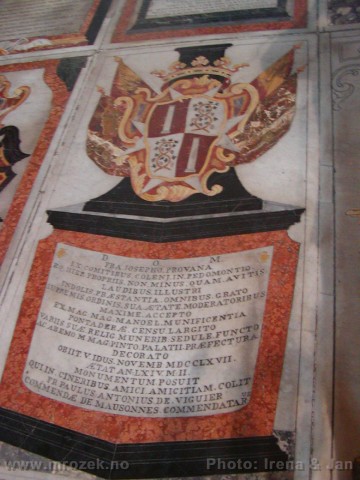 D. O. M.
FRA. IOSEPHO. PROVANA
EX COMITIBUS COLENI, IN PEDEMONTIO
PROPRIIS NON MINUS, QUAM AVITIS
LAUDIBUS ILLUSTRI
INDOLIS PRÆSTANTIA OMNIBUS GRATO
ORDINIS, SUA ÆTATE MODERATORIBUS
MAXIME ACCEPTO
EX MAG. MAG. MANOEL MUNIFICENTIA
PONTADERÆ CENSU LARGITO
VARIIS SUÆ RELIG. MUNERIB. SEDULE FUNCTO
AC DEMUM M. PINTO PALATII PRÆFECTURA
DECORATO
OBIIT V. IDUS NOVEMB MDCCLXVII.
ÆTAT. AN. LXIV. M II.
MONUMENTUM POSUIT
QUI IN CINERIBUS AMICI AMICITIAM COLIT
FR PAULUS ANTONIUS DE VIGUIER
COMMENDÆ DE MAUSONNES COMMENDATAR
www.mrozek.no
Photo: Irena & Jan